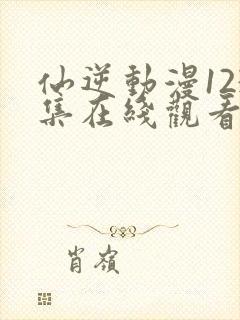 仙逆動漫12
集在綫觀看
肖嶺